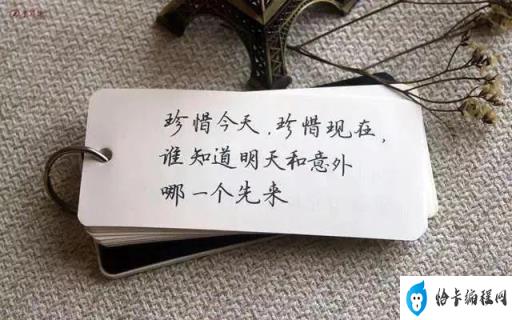 珍惜今天,珍惜现在,
谁知道明天和意外
哪一个先来
恰卡编程网